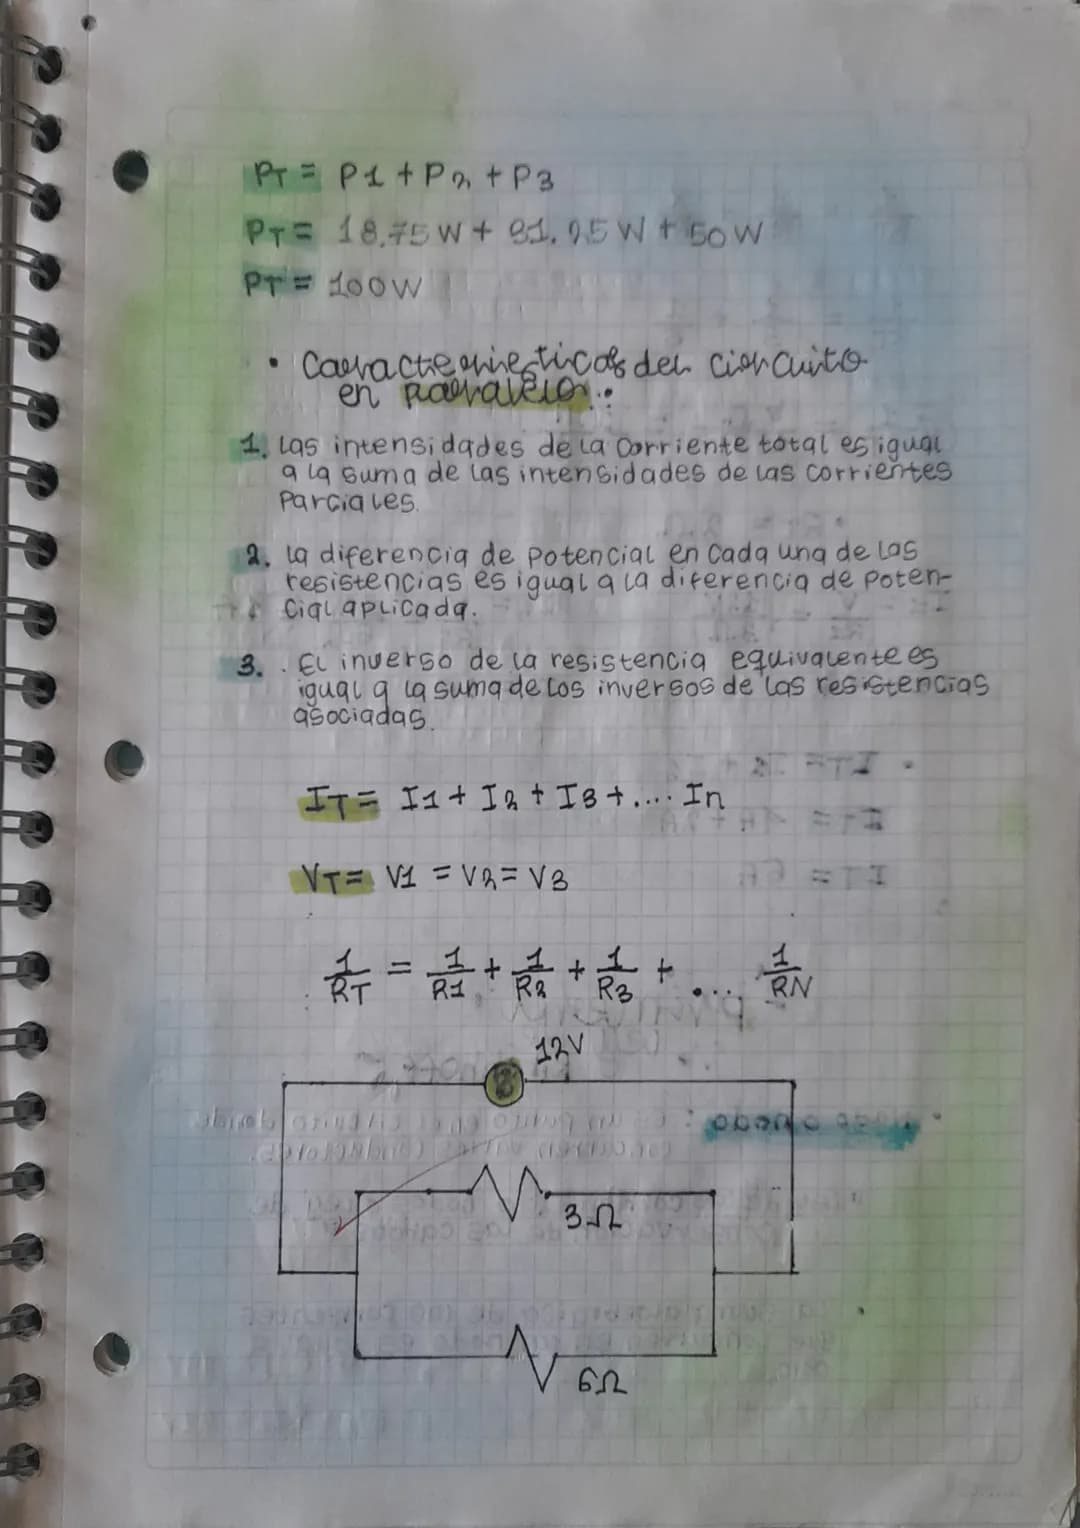 PT = P1 + P2 + P3
PT = 18.75 W + 31.25 W + 50 W
PT = 100 W
• Características del circuito
en paralelo:
1. Las intensidades de la corriente total es igual
a la suma de las intensidades de las corrientes
Parciales.
2. La diferencia de potencial en cada una de las
resistencias es igual a la diferencia de poten-
cial aplicada.
3. . El inverso de la resistencia equivalente es
igual a la suma de los inversos de las resistencias
asociadas.
IT = I1 + I2 + I3 + .... In
VT = V1 = V2 = V3
1/RT = 1/R1 + 1/R2 + 1/R3 + ... 1/RN
12V
3Ω
6Ω